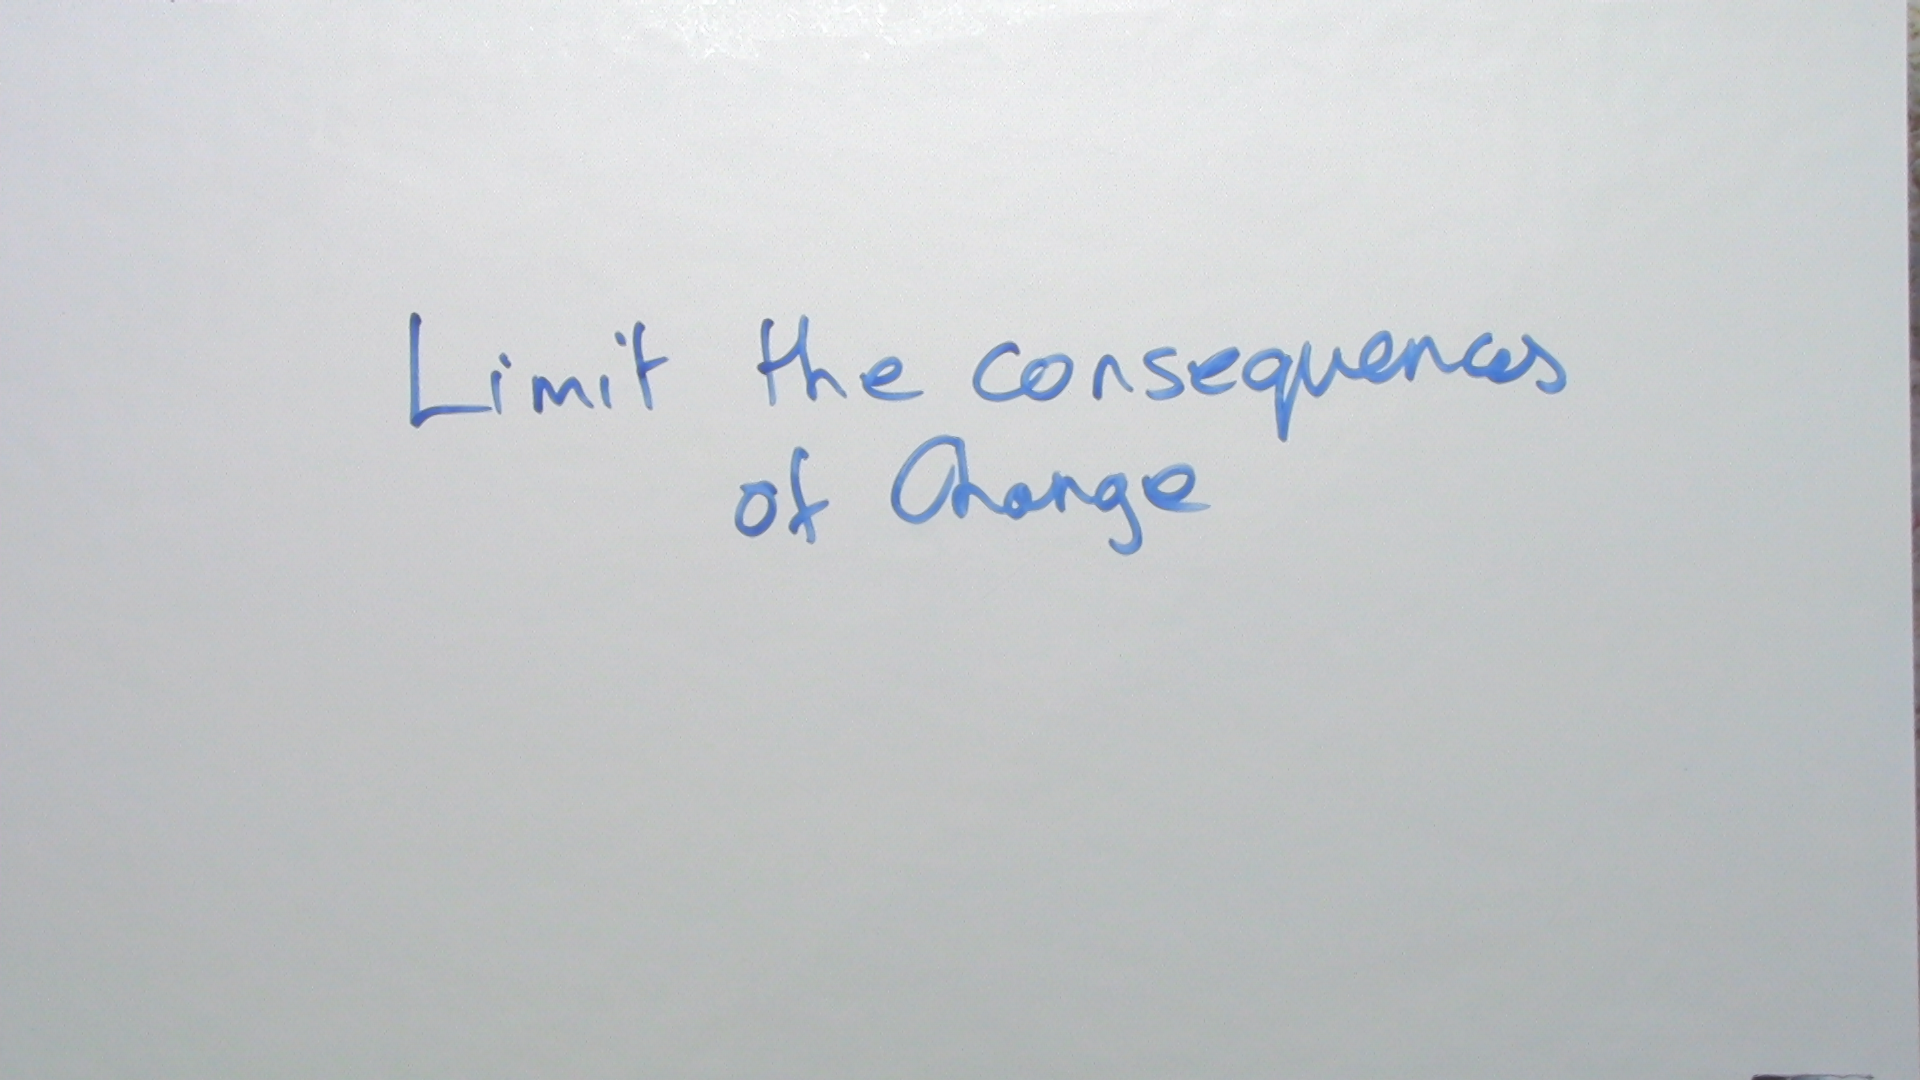 Limit the consequences
of Change